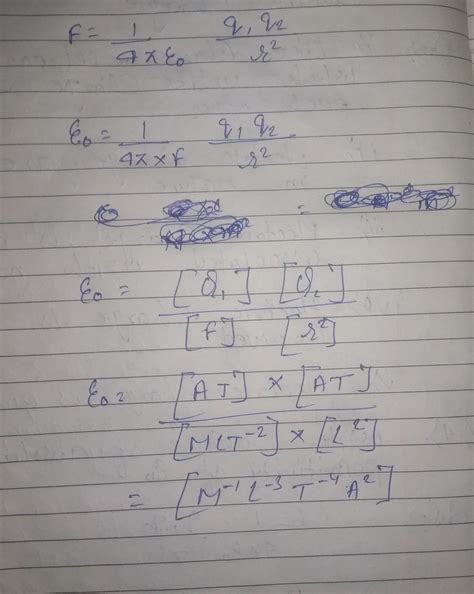 F = 1/4πε₀ q₁q₂/r²
ε₀ = 1/4π×F q₁q₂/r²
=
ε₀ = [Q₁] [Q₂] / [F] [r²]
ε₀ = [AT] × [AT] / [MLT⁻²] × [L²]
= [M⁻¹L⁻³T⁻⁴A²]